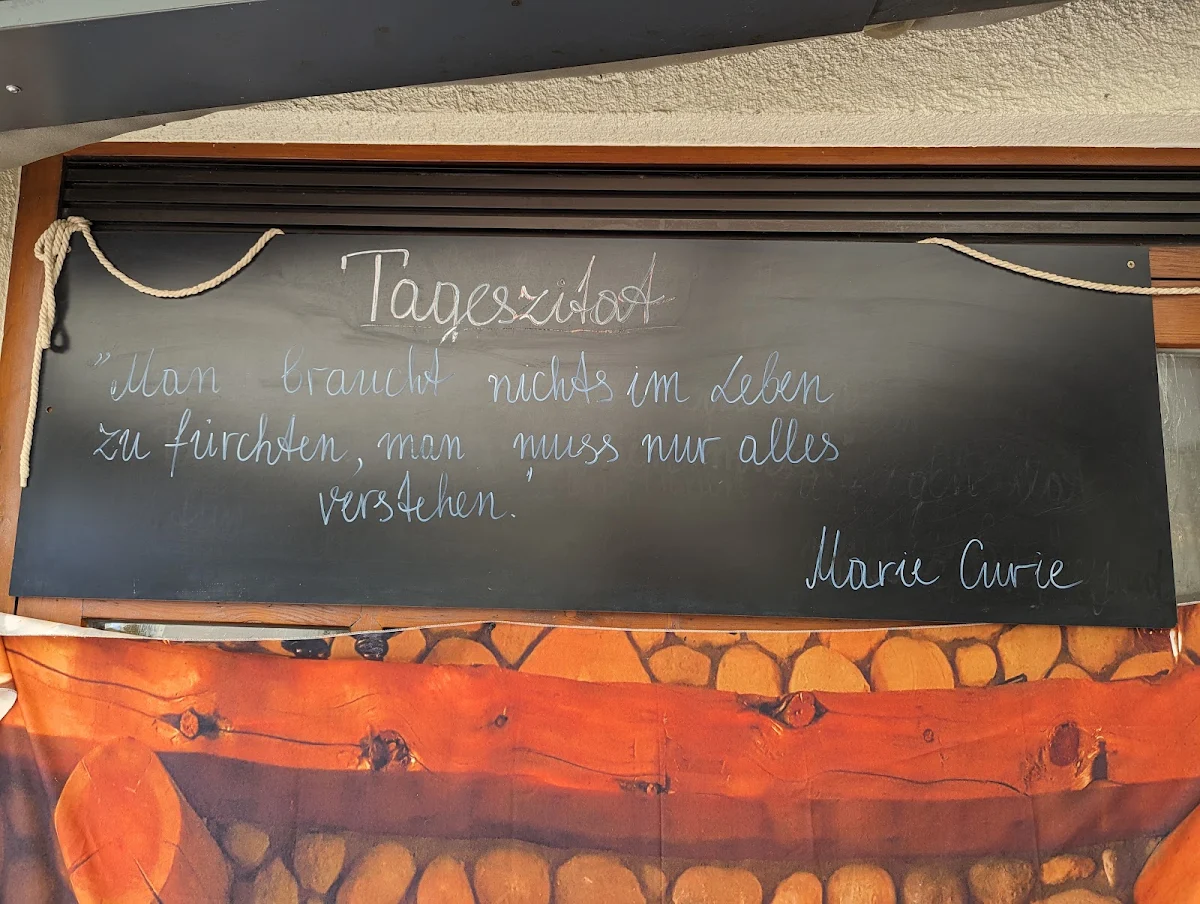 Tageszitat
"Man braucht nichts im Leben
zu fürchten, man muss nur alles
verstehen."
Marie Curie